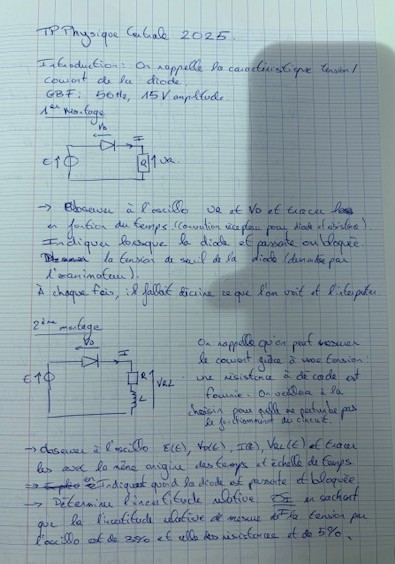 TP Physique Centrale 2025.
Introduction: On rappelle la caractéristique tension/
courant de la diode
GBF: 50Hz, 15V amplitude
1er Montage
VD
I
E
R
UR
→ Observer à l'oscillo UR et VD et tracer
en fonction du temps (convention récepteur pour diode et résistance)
Indiquer lorsque la diode est passante ou bloquée
la tension de seuil de la diode (demandée par
l'examinateur).
À chaque fois, il fallait décrire ce que l'on voit et l'interpréter
2ème montage
VD
I
E
R
L
VRL
On rappelle qu'on peut mesurer
le courant grâce à une tension:
une résistance à décade est
fournie. On veillera à la
choisir pour qu'elle ne perturbe pas
le fonctionnement du circuit.
→ observer à l'oscillo E(t), VD(t), I(t), VRL(t) et tracer
les avec la même origine des temps et échelle de temps
→ Indiquer quand la diode est passante et bloquée
→ Déterminer l'incertitude relative en sachant
que la l'incertitude relative de mesure de la tension par
l'oscillo est de 3% et celle des résistances est de 5%.